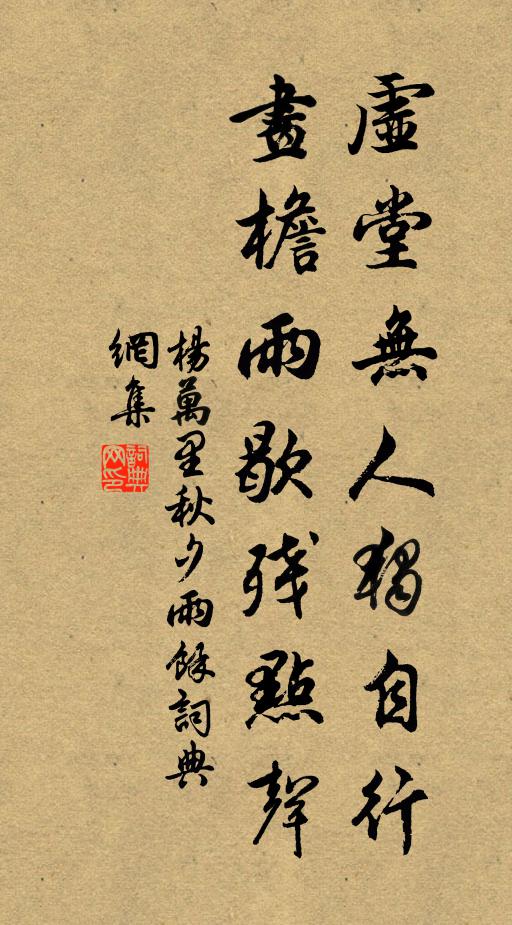 虛堂無人獨自行
畫檐雨歇殘點聲
楊萬里秋夕雨餘詞典
網集
詞典
网印